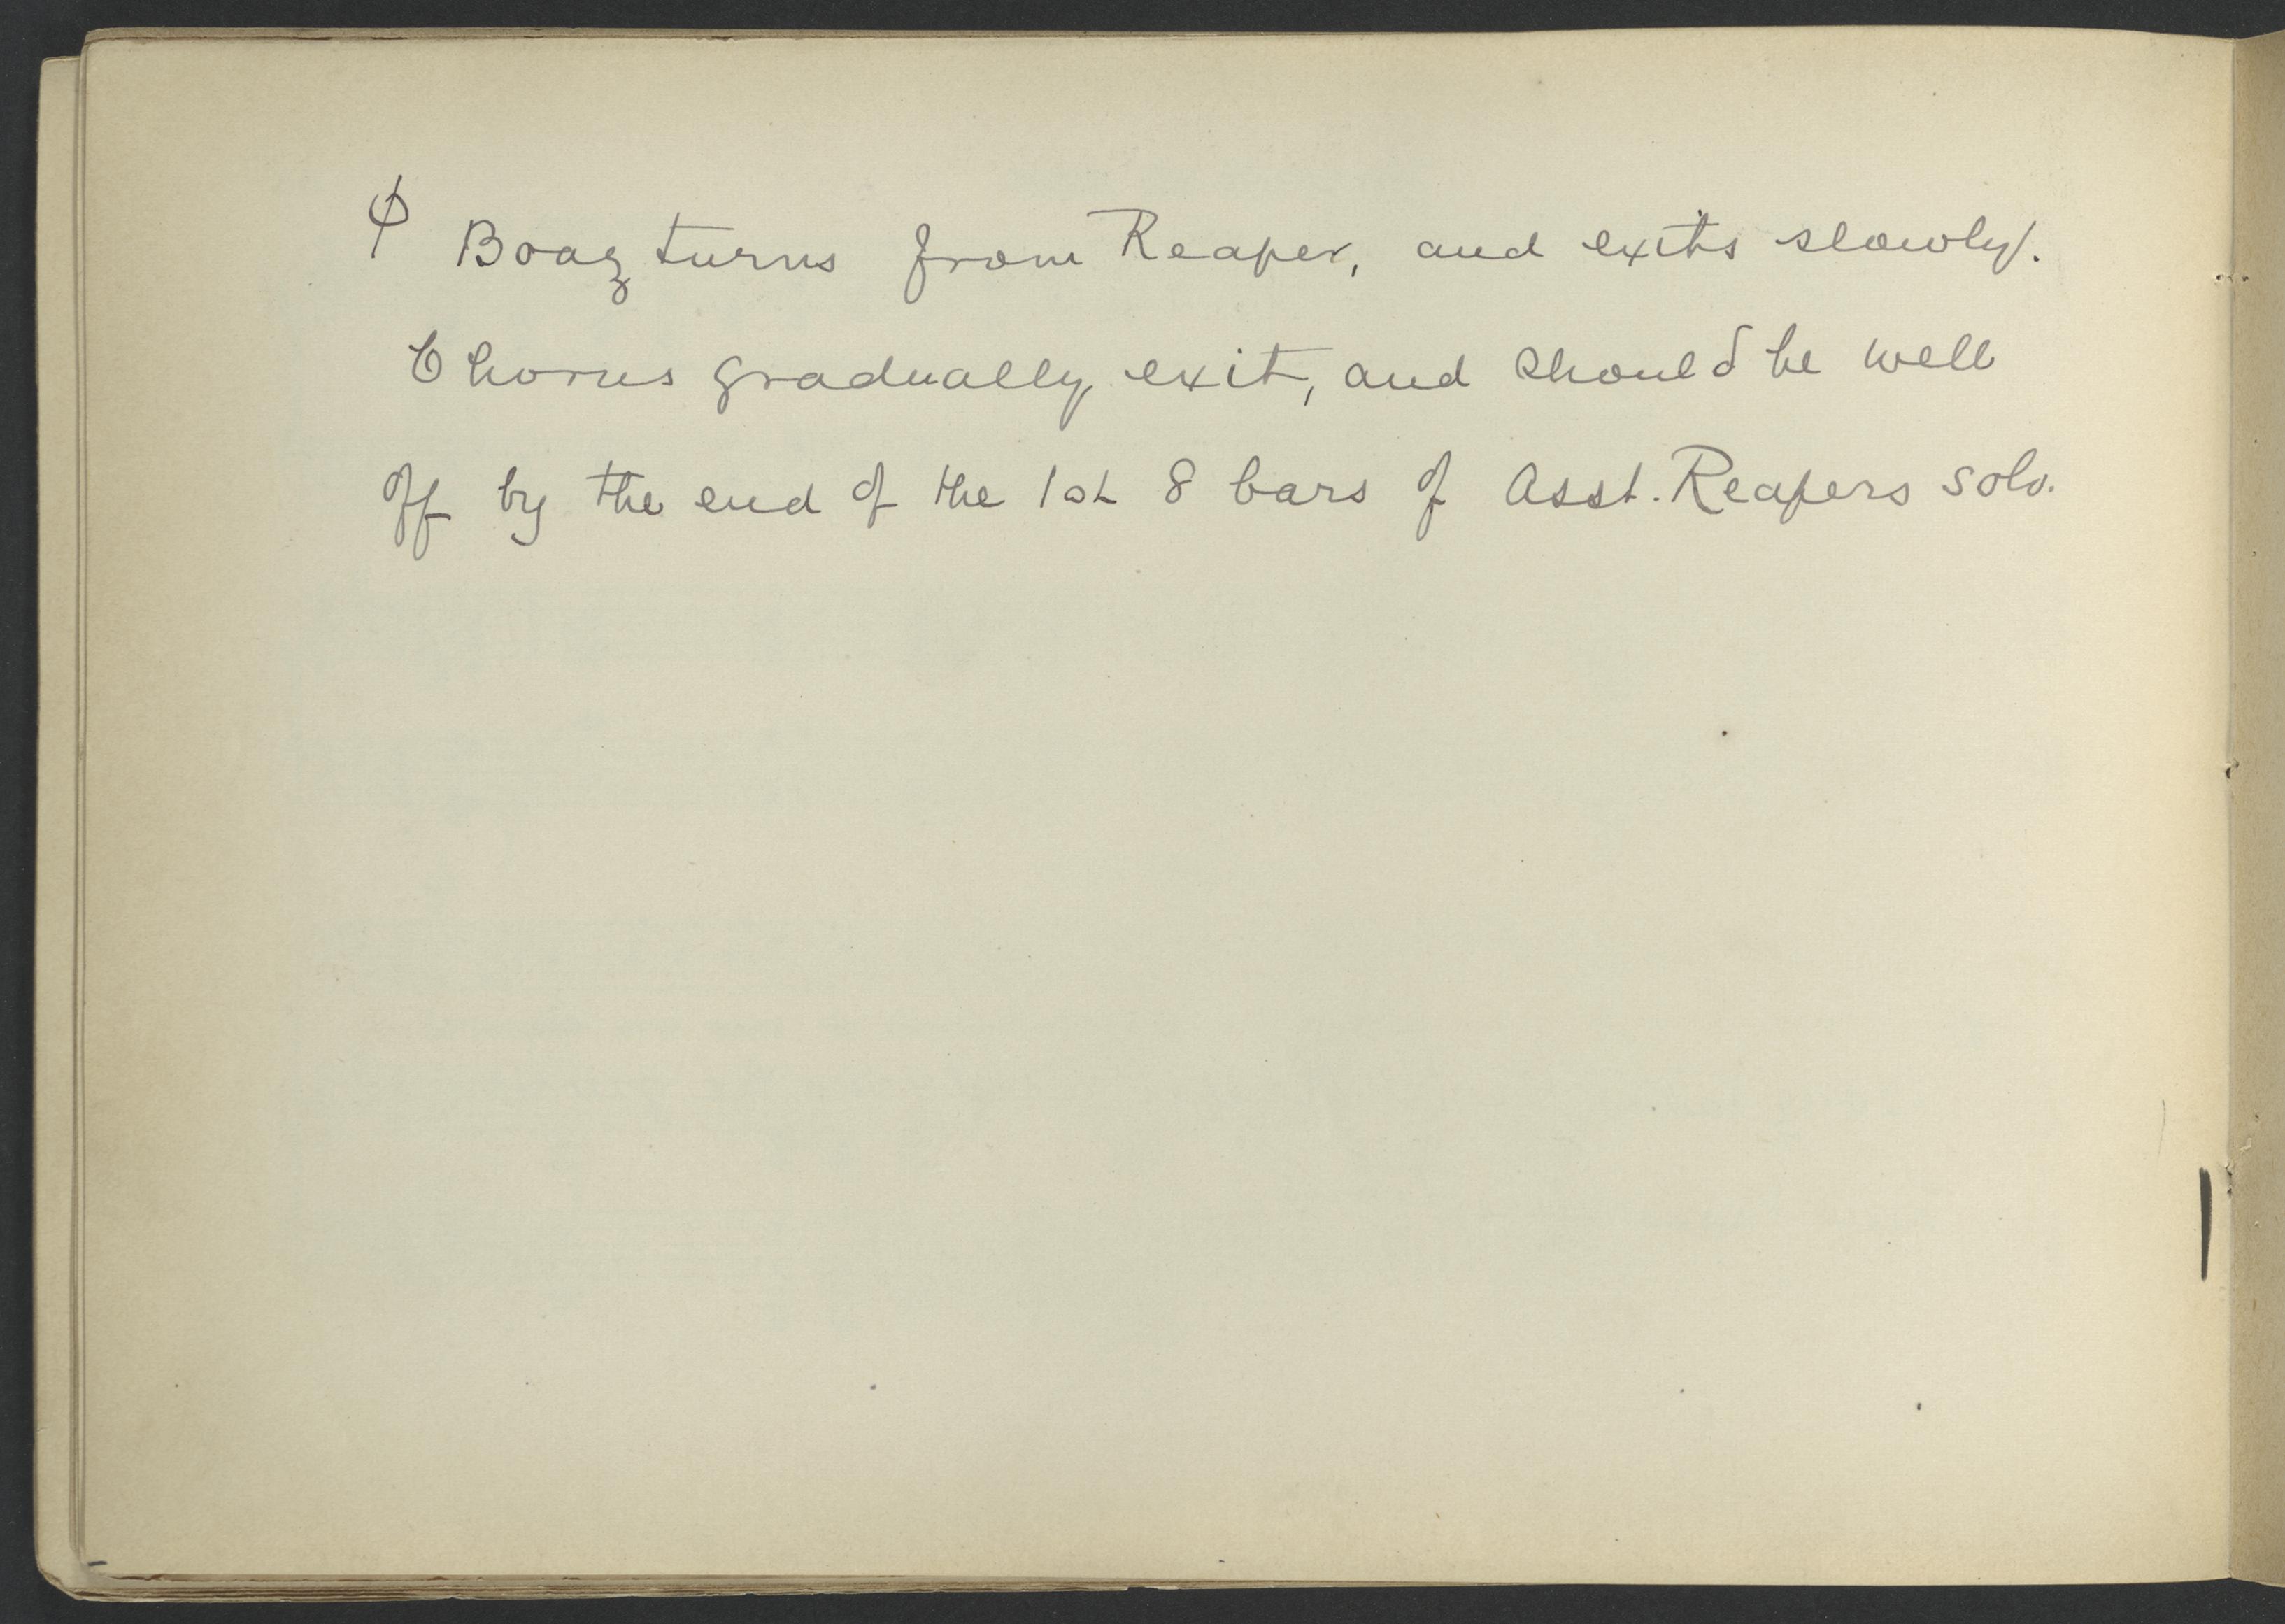 ϕ Boaz turns from Reaper, and exits slowly.
Chorus gradually exit, and should be well
off by the end of the 1st 8 bars of Asst. Reapers solo.